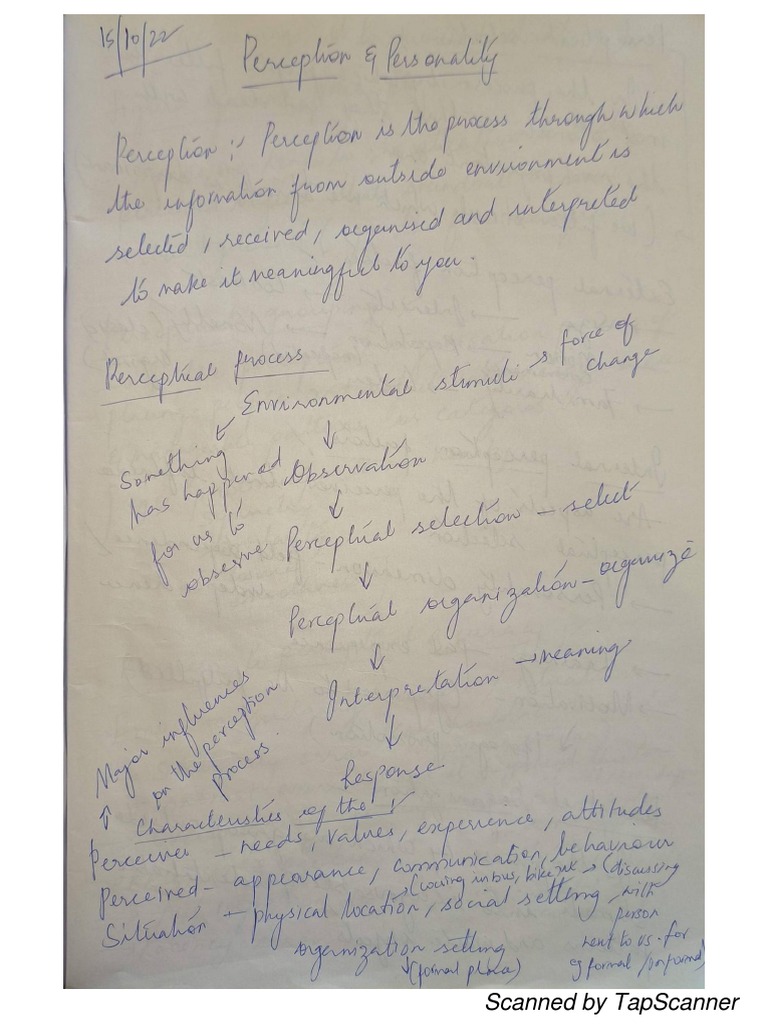 15/10/22
Perception & Personality
Perception :- Perception is the process through which
the information from outside environment is
selected, received, organised and interpreted
to make it meaningful to you.
Perceptual process
Environmental stimuli → force of
change
Something
has happened
for us to
observe
Observation
Perceptual selection – select
Perceptual organization – organize
Interpretation → meaning
Response
Major influences
on the perception
process.
Characteristics of the
Perceiver – needs, values, experience, attitudes
Perceived – appearance, communication, behaviour
Situation – physical location, social setting
(discussing
with
person
next to us - for
eg formal /informal)
organization setting
(formal place)
Scanned by TapScanner